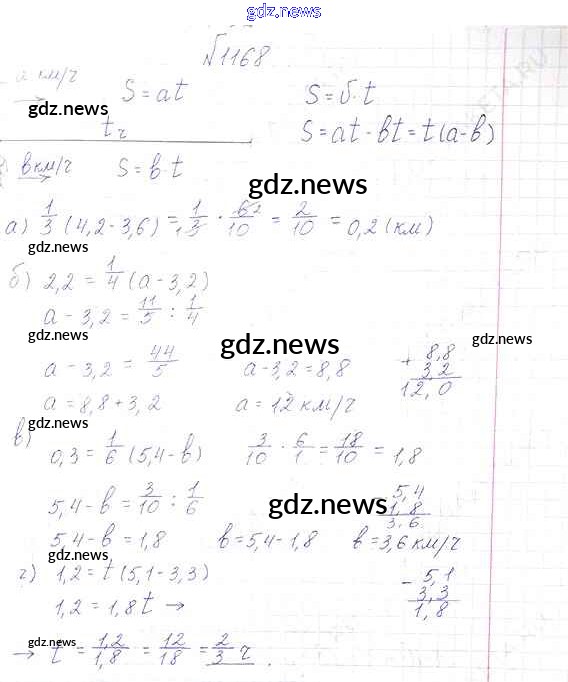 gdz.news
№1168
а км/ч
→ S = at S = б·t
gdz.news
t ч S = at - bt = t(a-b)
в км/ч S = b·t
gdz.news
а) 1/3 (4,2-3,6) = 1/3 · 6/10 = 2/10 = 0,2 (км)
gdz.news
б) 2,2 = 1/4 (a-3,2)
a - 3,2 = 11/5 : 1/4
gdz.news gdz.news
a - 3,2 = 44/5 a-3,2 = 8,8 + 8,8
3 2
a = 8,8+3,2 a = 12 км/ч 12,0
gdz.news
в) 0,3 = 1/6 (5,4-b) 3/10 · 6/1 = 18/10 = 1,8
5,4 - b = 3/10 : 1/6 gdz.news - 5,4
1,8
3,6
5,4-b = 1,8 b = 5,4-1,8 b = 3,6 км/ч
gdz.news
г) 1,2 = t (5,1-3,3) - 5,1
3,3
1,2 = 1,8t → 1,8
gdz.news
→ t = 1,2/1,8 = 12/18 = 2/3 ч.